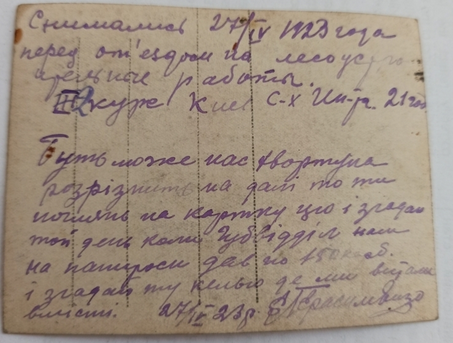 Снимались 27/IV 1923 года
перед от'ездом на лесоустро
ительные работы.
курж Киев С-Х Ин-та.
Будь може нас фортуна
розрізнить на далі то ти
поглянь на картку цю і згадай
той день коли Губвідділ нам
на папироси дав по
і згадай ту келью де ми
вмісті. 27/IV 23р.